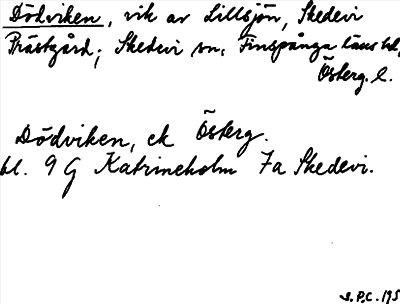 Dödviken, vik av Lillsjön, Skedevi
Prästgård; Skedevi sn. Finspånga läns hd,
Österg. l.
Dödviken, ek Österg.
bl. 9 G Katrineholm 7a Skedevi.
S.P.C. 195